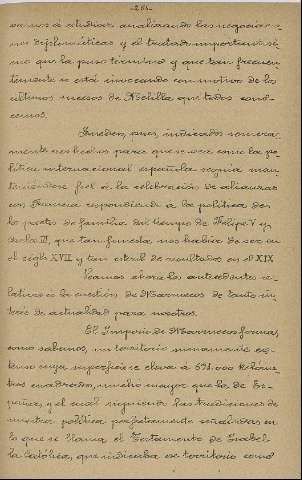 -201-
vamos á estudiar, analizando las negociacio-
nes diplomáticas y el tratado importantísi-
mo que la puso término y que tan frecuen-
temente se está invocando con motivo de los
últimos sucesos de Melilla que todos cono-
cemos.
Queden, pues, indicados somera-
mente esos hechos para que se vea como la po-
lítica internacional española seguía man-
teniéndose fiel á la celebración de alianzas
con Francia respondiendo á la política de
los pactos de familia del tiempo de Felipe V y
Carlos III, que tan funesta nos había de ser en
el siglo XVIII y tan estéril de resultados en el XIX
Veamos ahora los antecedentes re-
lativos á la cuestión de Marruecos de tanto in-
terés de actualidad para nosotros.
El Imperio de Marruecos forma,
como sabemos, un territorio sumamente ex-
tenso cuya superficie se eleva á 671.000 kilóme-
tros cuadrados, mucho mayor que la de Es-
paña, y el cual siguiendo las tradiciones de
nuestra política perfectamente señaladas en
lo que se llama el Testamento de Isabel
la Católica, que indicaba ese territorio como